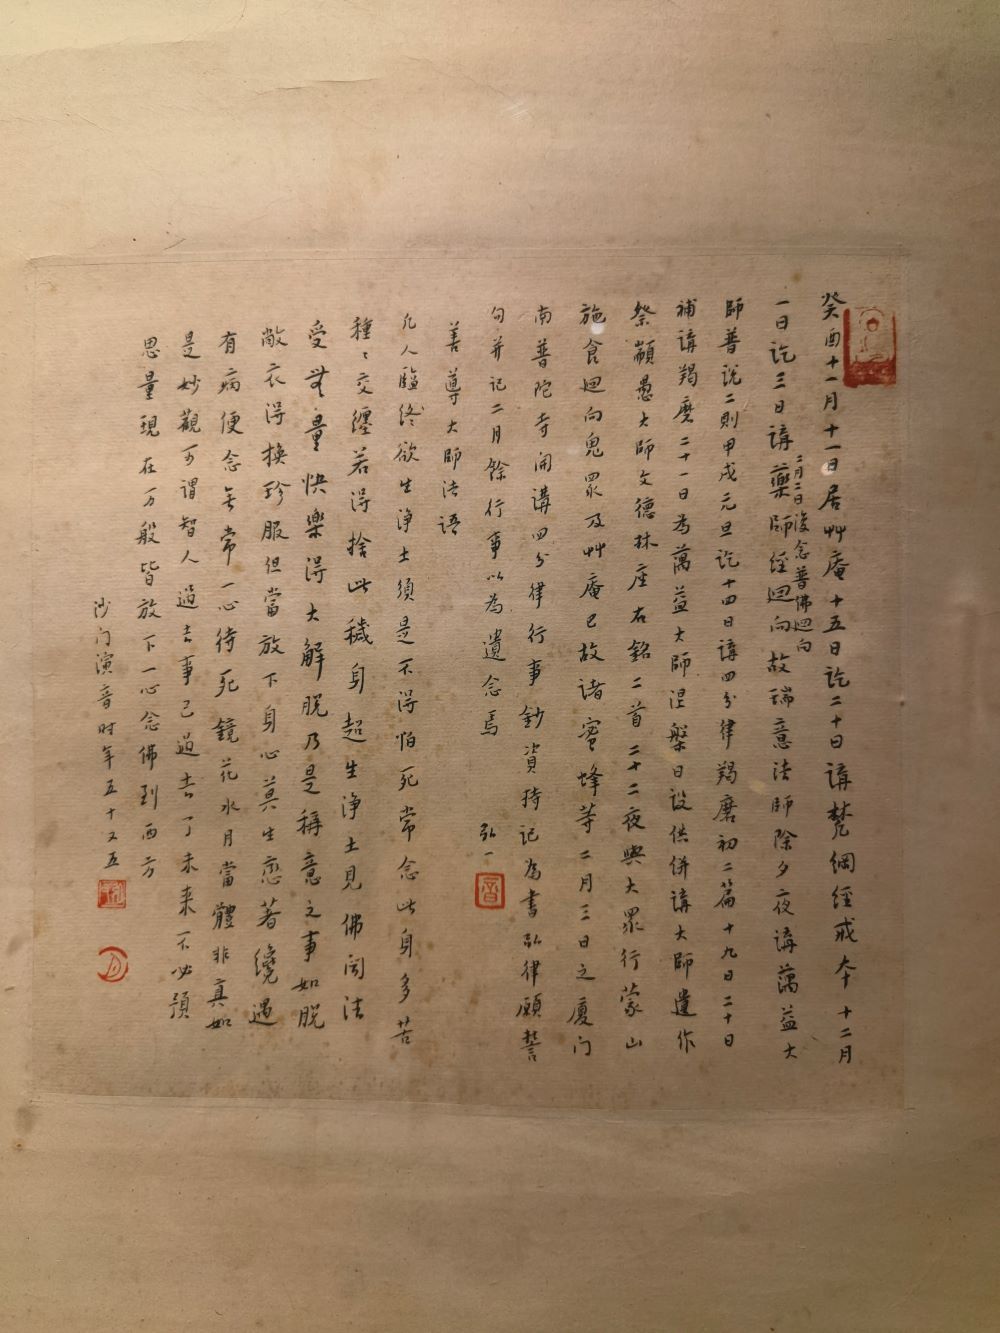 癸酉十一月十一日居艸庵十五日訖二十日講梵網經戒本十二月
一日訖三日講藥師經迴向故瑞意法師除夕夜講蕅益大
二月二日後念普佛迴向
師普說二則甲戌元旦訖十四日講四分律羯磨初二篇十九日二十日
補講羯磨二十一日為蕅益大師涅槃日設供併講大師遺作
祭顓愚大師文德林座右銘二首二十二夜與大眾行蒙山
施食迴向鬼眾及艸庵已故諸蜜蜂等二月三日之廈门
南普陀寺開講四分律行事鈔資持記為書弘律願誓
句并記二月餘行事以為遺念焉 弘一
音
善導大師法語
凡人臨終欲生淨土須是不得怕死常念此身多苦
種〻交纏若得捨此穢身超生淨土見佛聞法
受无量快樂得大解脫乃是稱意之事如脫
敝衣得換珍服但當放下身心莫生戀著纔遇
有病便念无常一心待死鏡花水月當體非真如
是妙觀可謂智人過去事已過去了未来不必預
思量現在万般皆放下一心念佛到西方
沙门演音时年五十又五